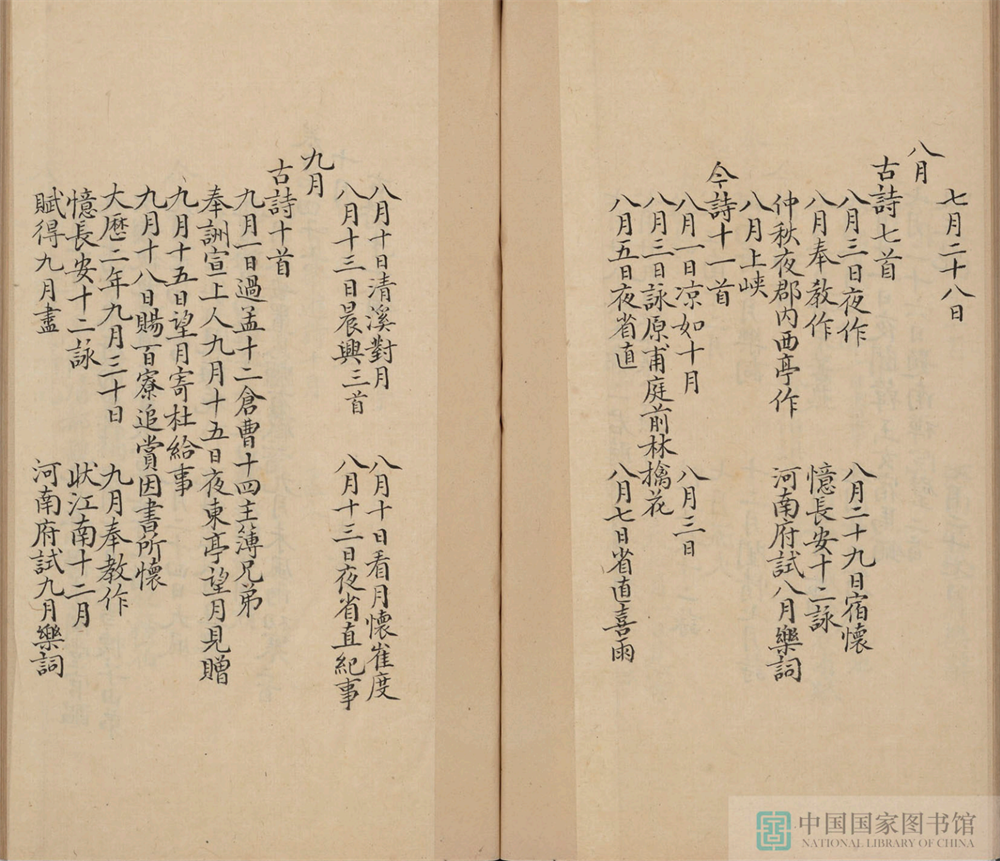 七月二十八日
八月
古詩七首
八月三日夜作　八月二十九日宿懷
八月奉教作　憶長安十二詠
仲秋夜郡内西亭作　河南府試八月樂詞
八月上峽
今詩十一首
八月一日凉如十月　八月三日
八月三日詠原甫庭前林擒花
八月五日夜省直　八月七日省直喜雨
八月十日清溪對月　八月十日看月懷崔度
八月十三日晨興三首　八月十三日夜省直紀事
九月
古詩十首
九月一日過孟十二倉曹十四主簿兄弟
奉詶宣上人九月十五日夜東亭望月見贈
九月十五日望月寄杜給事
九月十八日賜百寮追賞因書所懷
大歷二年九月三十日　九月奉教作
憶長安十二詠　狀江南十二月
賦得九月盡　河南府試九月樂詞
中国国家图书馆
NATIONAL LIBRARY OF CHINA